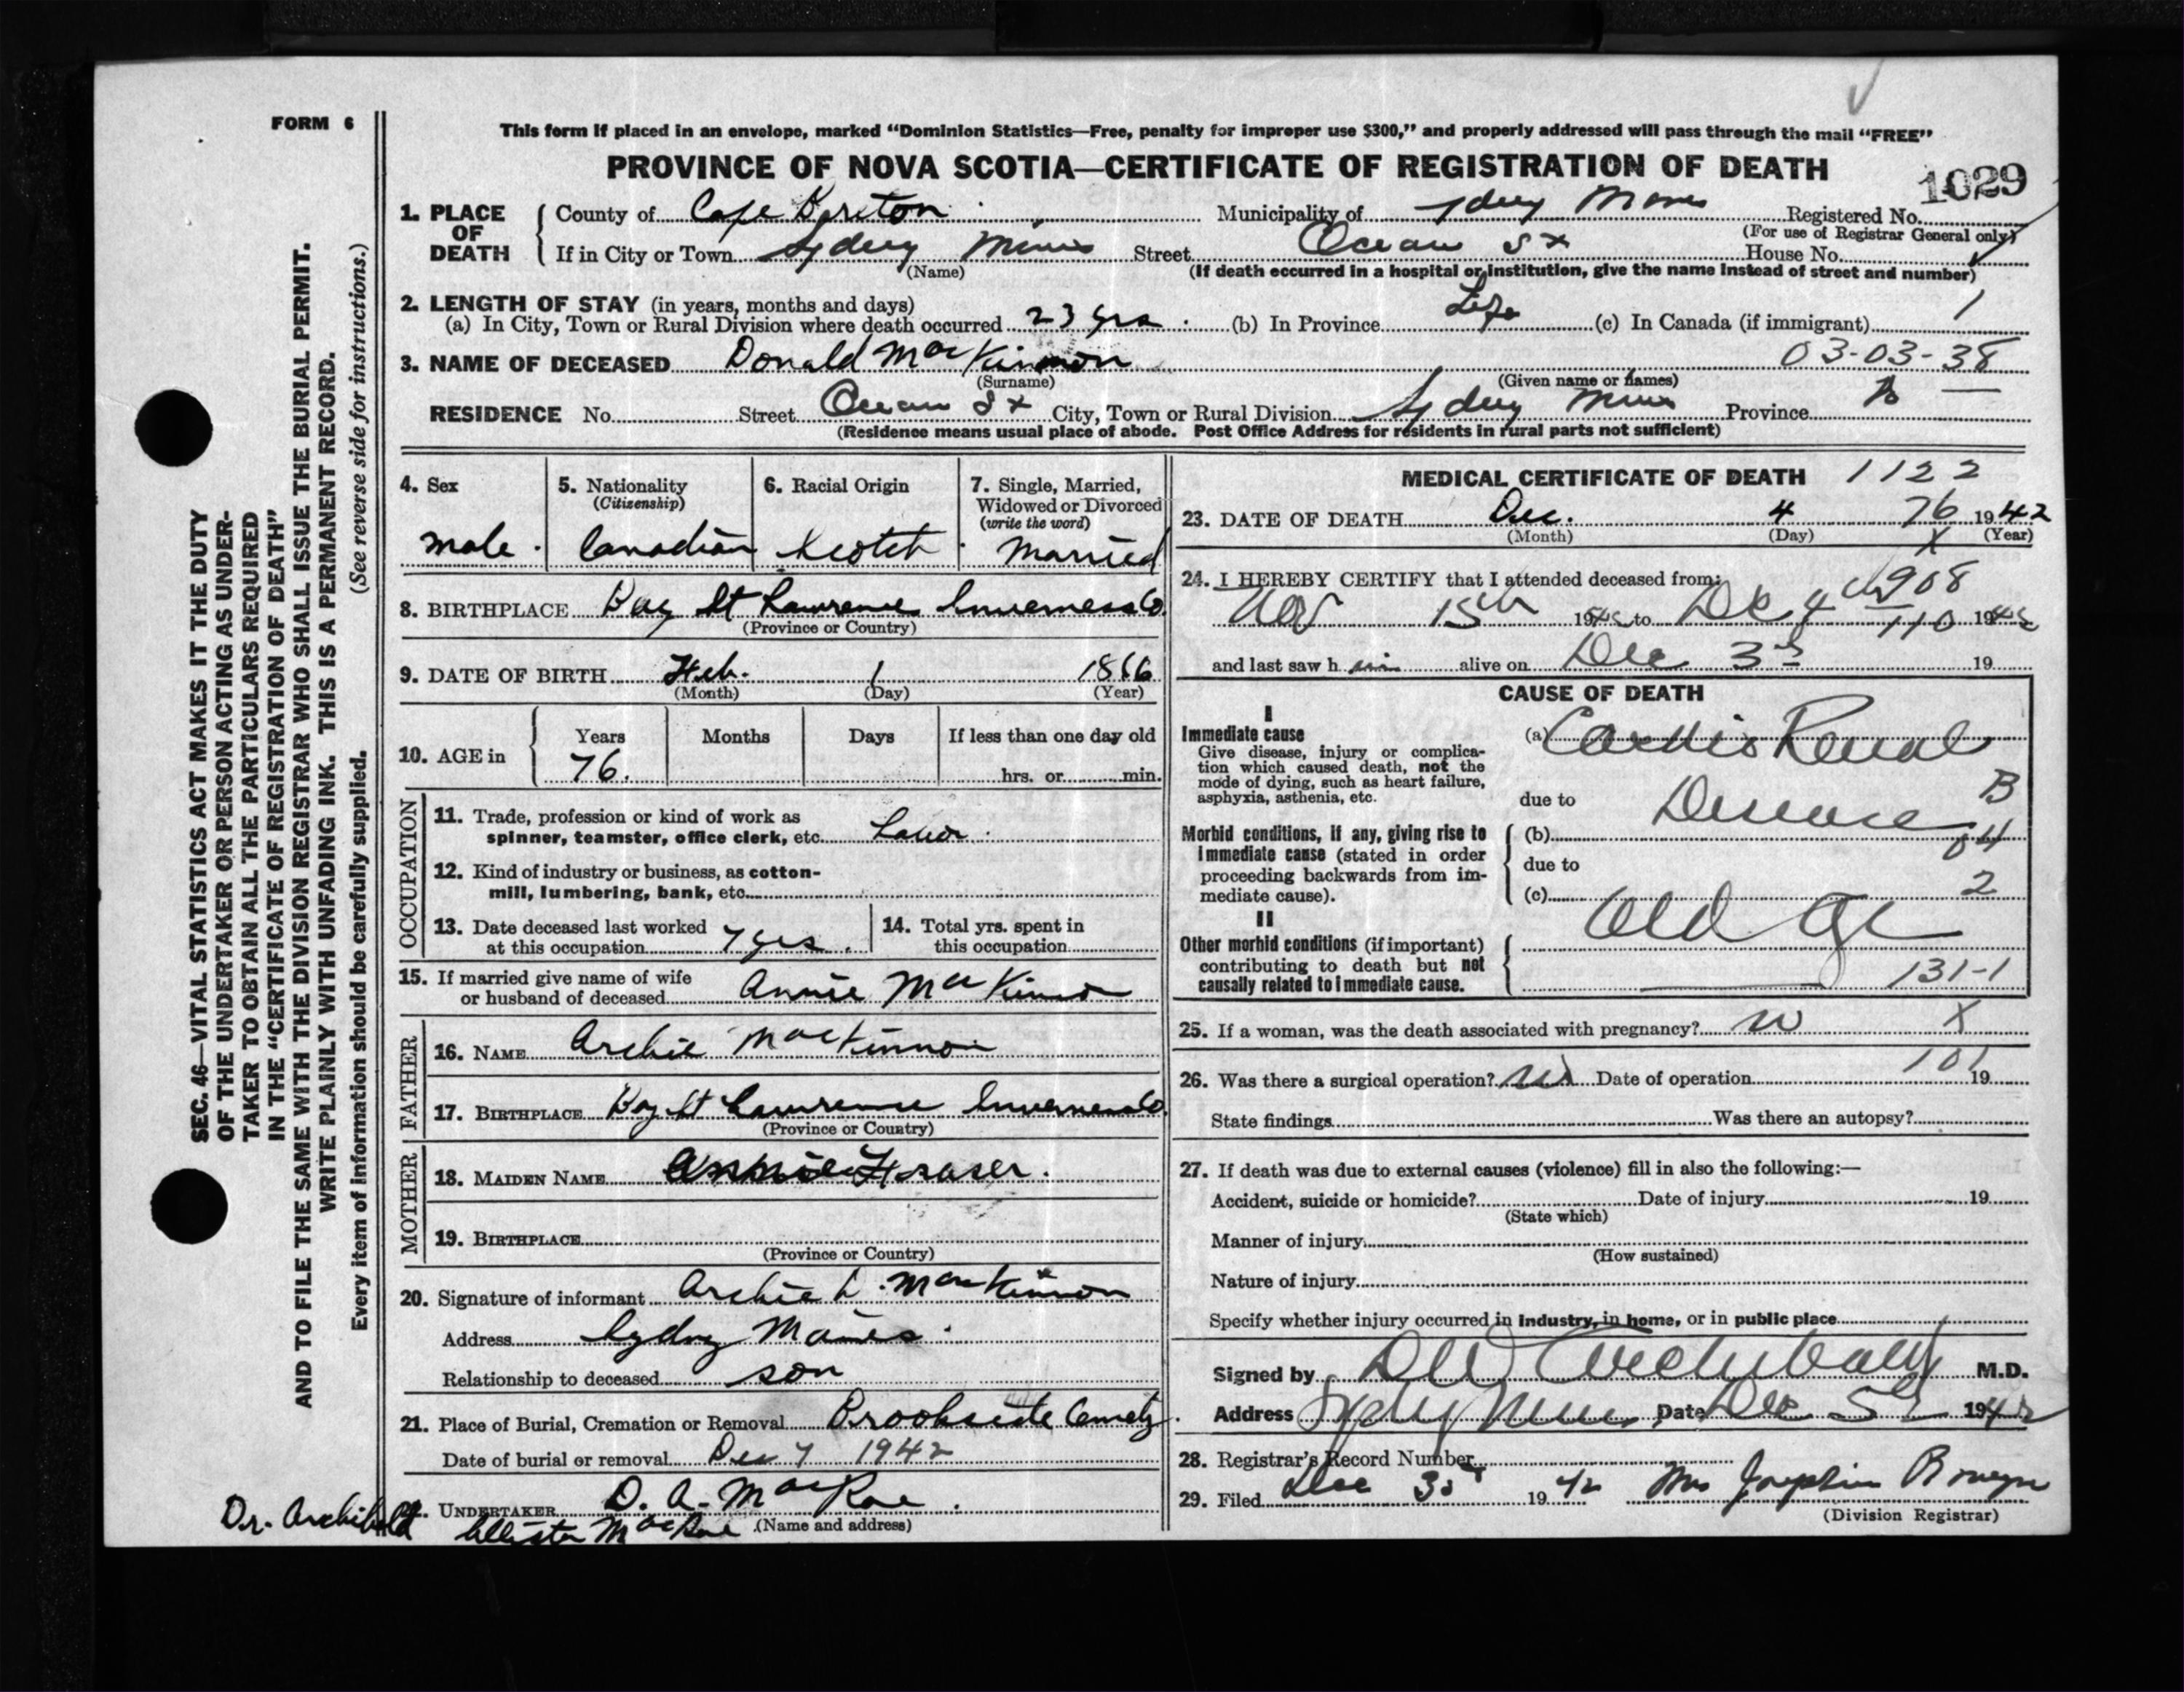 FORM 6
This form if placed in an envelope, marked “Dominion Statistics—Free, penalty for improper use $300,” and properly addressed will pass through the mail “FREE”
PROVINCE OF NOVA SCOTIA—CERTIFICATE OF REGISTRATION OF DEATH
1029
1. PLACE OF DEATH
County of Cape Breton Municipality of Sydney Mines Registered No.
(For use of Registrar General only)
If in City or Town Sydney Mines Street Ocean St House No.
(Name) (If death occurred in a hospital or institution, give the name instead of street and number)
2. LENGTH OF STAY (in years, months and days)
(a) In City, Town or Rural Division where death occurred 23 yrs. (b) In Province Life (c) In Canada (if immigrant) 1
03-03-38
3. NAME OF DECEASED Donald MacKinnon
(Surname) (Given name or names)
RESIDENCE No. Street Ocean St City, Town or Rural Division Sydney Mines Province
(Residence means usual place of abode. Post Office Address for residents in rural parts not sufficient)
4. Sex
male.
5. Nationality
(Citizenship)
Canadian
6. Racial Origin
Scotch.
7. Single, Married,
Widowed or Divorced
(write the word)
Married
8. BIRTHPLACE Bay St Lawrence Inverness Co.
(Province or Country)
9. DATE OF BIRTH Feb. 1 1866
(Month) (Day) (Year)
10. AGE in
Years Months Days If less than one day old
76. hrs. or min.
OCCUPATION
11. Trade, profession or kind of work as
spinner, teamster, office clerk, etc. Labor.
12. Kind of industry or business, as cotton-
mill, lumbering, bank, etc.
13. Date deceased last worked
at this occupation 7 yrs.
14. Total yrs. spent in
this occupation
15. If married give name of wife
or husband of deceased Annie MacKinnon
FATHER
16. NAME Archie MacKinnon
17. BIRTHPLACE Bay St Lawrence Inverness Co.
(Province or Country)
MOTHER
18. MAIDEN NAME Annie Fraser.
19. BIRTHPLACE
(Province or Country)
20. Signature of informant Archie L. MacKinnon
Address Sydney Mines.
Relationship to deceased son
21. Place of Burial, Cremation or Removal Brookside Cemety.
Date of burial or removal Dec 7 1942
UNDERTAKER D. A. MacRae.
(Name and address)
MacRae
Dr. Archibald
MEDICAL CERTIFICATE OF DEATH 1122
23. DATE OF DEATH Dec. 4 76 1942
(Month) (Day) (Year)
X
24. I HEREBY CERTIFY that I attended deceased from:
908
Nov 15th 1942 to Dec 4th 110 1942
and last saw him alive on Dec 3rd 19
CAUSE OF DEATH
I
Immediate cause
Give disease, injury or complica-
tion which caused death, not the
mode of dying, such as heart failure,
asphyxia, asthenia, etc.
(a) Cardio Renal
due to Disease B
Morbid conditions, if any, giving rise to
immediate cause (stated in order
proceeding backwards from im-
mediate cause).
(b)
due to
(c) 2
II
Other morbid conditions (if important)
contributing to death but not
causally related to immediate cause.
Old Age
131-1
25. If a woman, was the death associated with pregnancy? no X
26. Was there a surgical operation? no Date of operation 101 19
State findings Was there an autopsy?
27. If death was due to external causes (violence) fill in also the following:—
Accident, suicide or homicide? Date of injury 19
(State which)
Manner of injury
(How sustained)
Nature of injury
Specify whether injury occurred in industry, in home, or in public place
Signed by D W Archibald M.D.
Address Sydney Mines Date Dec 5th 1942
28. Registrar's Record Number
29. Filed Dec 1942 Mrs Josephine
(Division Registrar)
SEC. 46—VITAL STATISTICS ACT MAKES IT THE DUTY
OF THE UNDERTAKER OR PERSON ACTING AS UNDER-
TAKER TO OBTAIN ALL THE PARTICULARS REQUIRED
IN THE “CERTIFICATE OF REGISTRATION OF DEATH”
AND TO FILE THE SAME WITH THE DIVISION REGISTRAR WHO SHALL ISSUE THE BURIAL PERMIT.
WRITE PLAINLY WITH UNFADING INK. THIS IS A PERMANENT RECORD.
Every item of information should be carefully supplied. (See reverse side for instructions.)